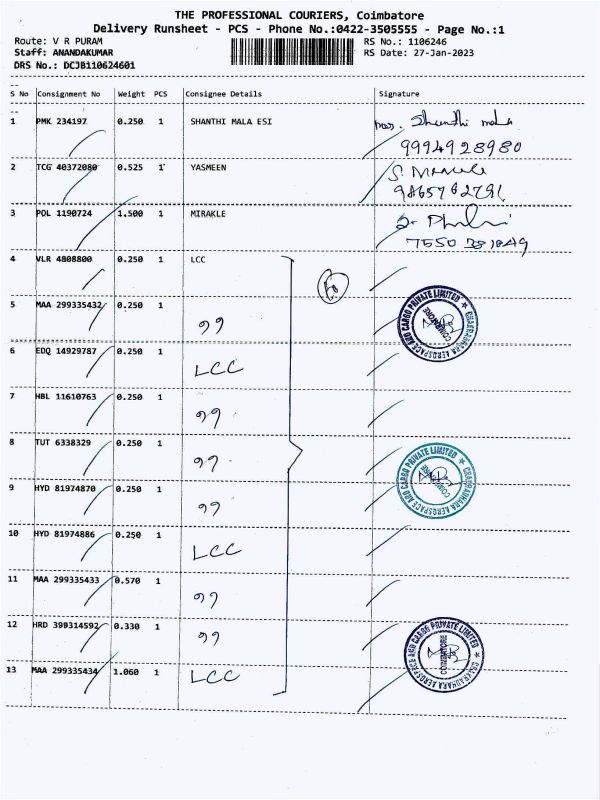 THE PROFESSIONAL COURIERS, Coimbatore
Delivery Runsheet - PCS - Phone No.:0422-3505555 - Page No.:1
Route: V R PURAM RS No.: 1106246
Staff: ANANDAKUMAR RS Date: 27-Jan-2023
DRS No.: DCJB110624601
S No Consignment No Weight PCS Consignee Details Signature
1 PMK 234197 0.250 1 SHANTHI MALA ESI Shanthi mala
9994928980
2 TCG 40372080 0.525 1 YASMEEN
3 POL 1190724 1.500 1 MIRAKLE
4 VLR 4808800 0.250 1 LCC
5 MAA 299335432 0.250 1 ,,
CHAKRADHARA AEROSPACE AND CARGO PRIVATE LIMITED COIMBATORE
6 EDQ 14929787 0.250 1 LCC
7 HBL 11610763 0.250 1 ,,
8 TUT 6338329 0.250 1 ,,
CHAKRADHARA AEROSPACE AND CARGO PRIVATE LIMITED COIMBATORE
9 HYD 81974870 0.250 1 ,,
10 HYD 81974886 0.250 1 LCC
11 MAA 299335433 0.570 1 ,,
12 HRD 399314592 0.330 1 ,,
CHAKRADHARA AEROSPACE AND CARGO PRIVATE LIMITED COIMBATORE
13 MAA 299335434 1.060 1 LCC